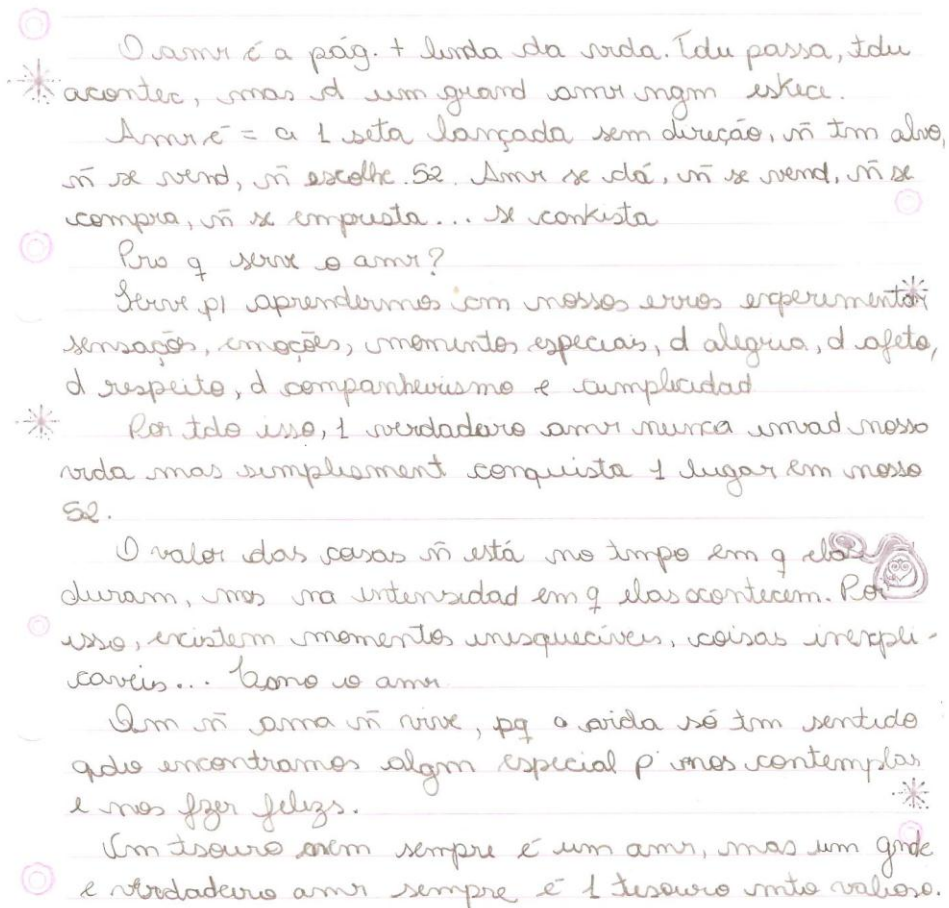 O amr é a pág. + linda da vida. Tdu passa, tdu
acontec, mas d um grand amr ngm eskece.
Amr é = a 1 seta lançada sem direção, ñ tm alvo,
ñ se vend, ñ escolhe S2. Amr se dá, ñ se vend, ñ se
compra, ñ se empresta... se conkista
Pro q serve o amr?
Serve p/ aprendermos cm nossos erros experimentar
sensações, emoções, momentos especiais, d alegria, d afeto,
d respeito, d companheirismo e cumplicidad
Por tdo isso, 1 verdadeiro amr nunca invad nossa
vida mas simplisment conquista 1 lugar em nosso
S2.
O valor das coisas ñ está no tmpo em q elas
duram, mas na intensidad em q elas acontecem. Por
isso, existem momentos inesquecíveis, coisas inexpli-
caveis... Como o amr
Qm ñ ama ñ vive, pq a vida só tm sentido
qdo encontramos algm especial p nos contemplar
e nos fzer felizs.
Um tsouro nem sempre é um amr, mas um gnde
e verdadeiro amr sempre é 1 tesouro mto valioso.